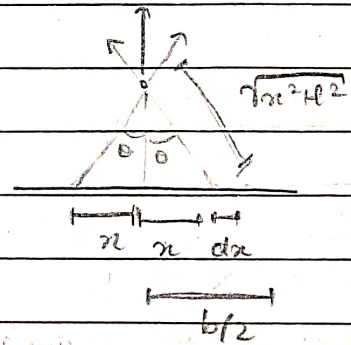 √x²+l²
θ θ
x x dx
b/2